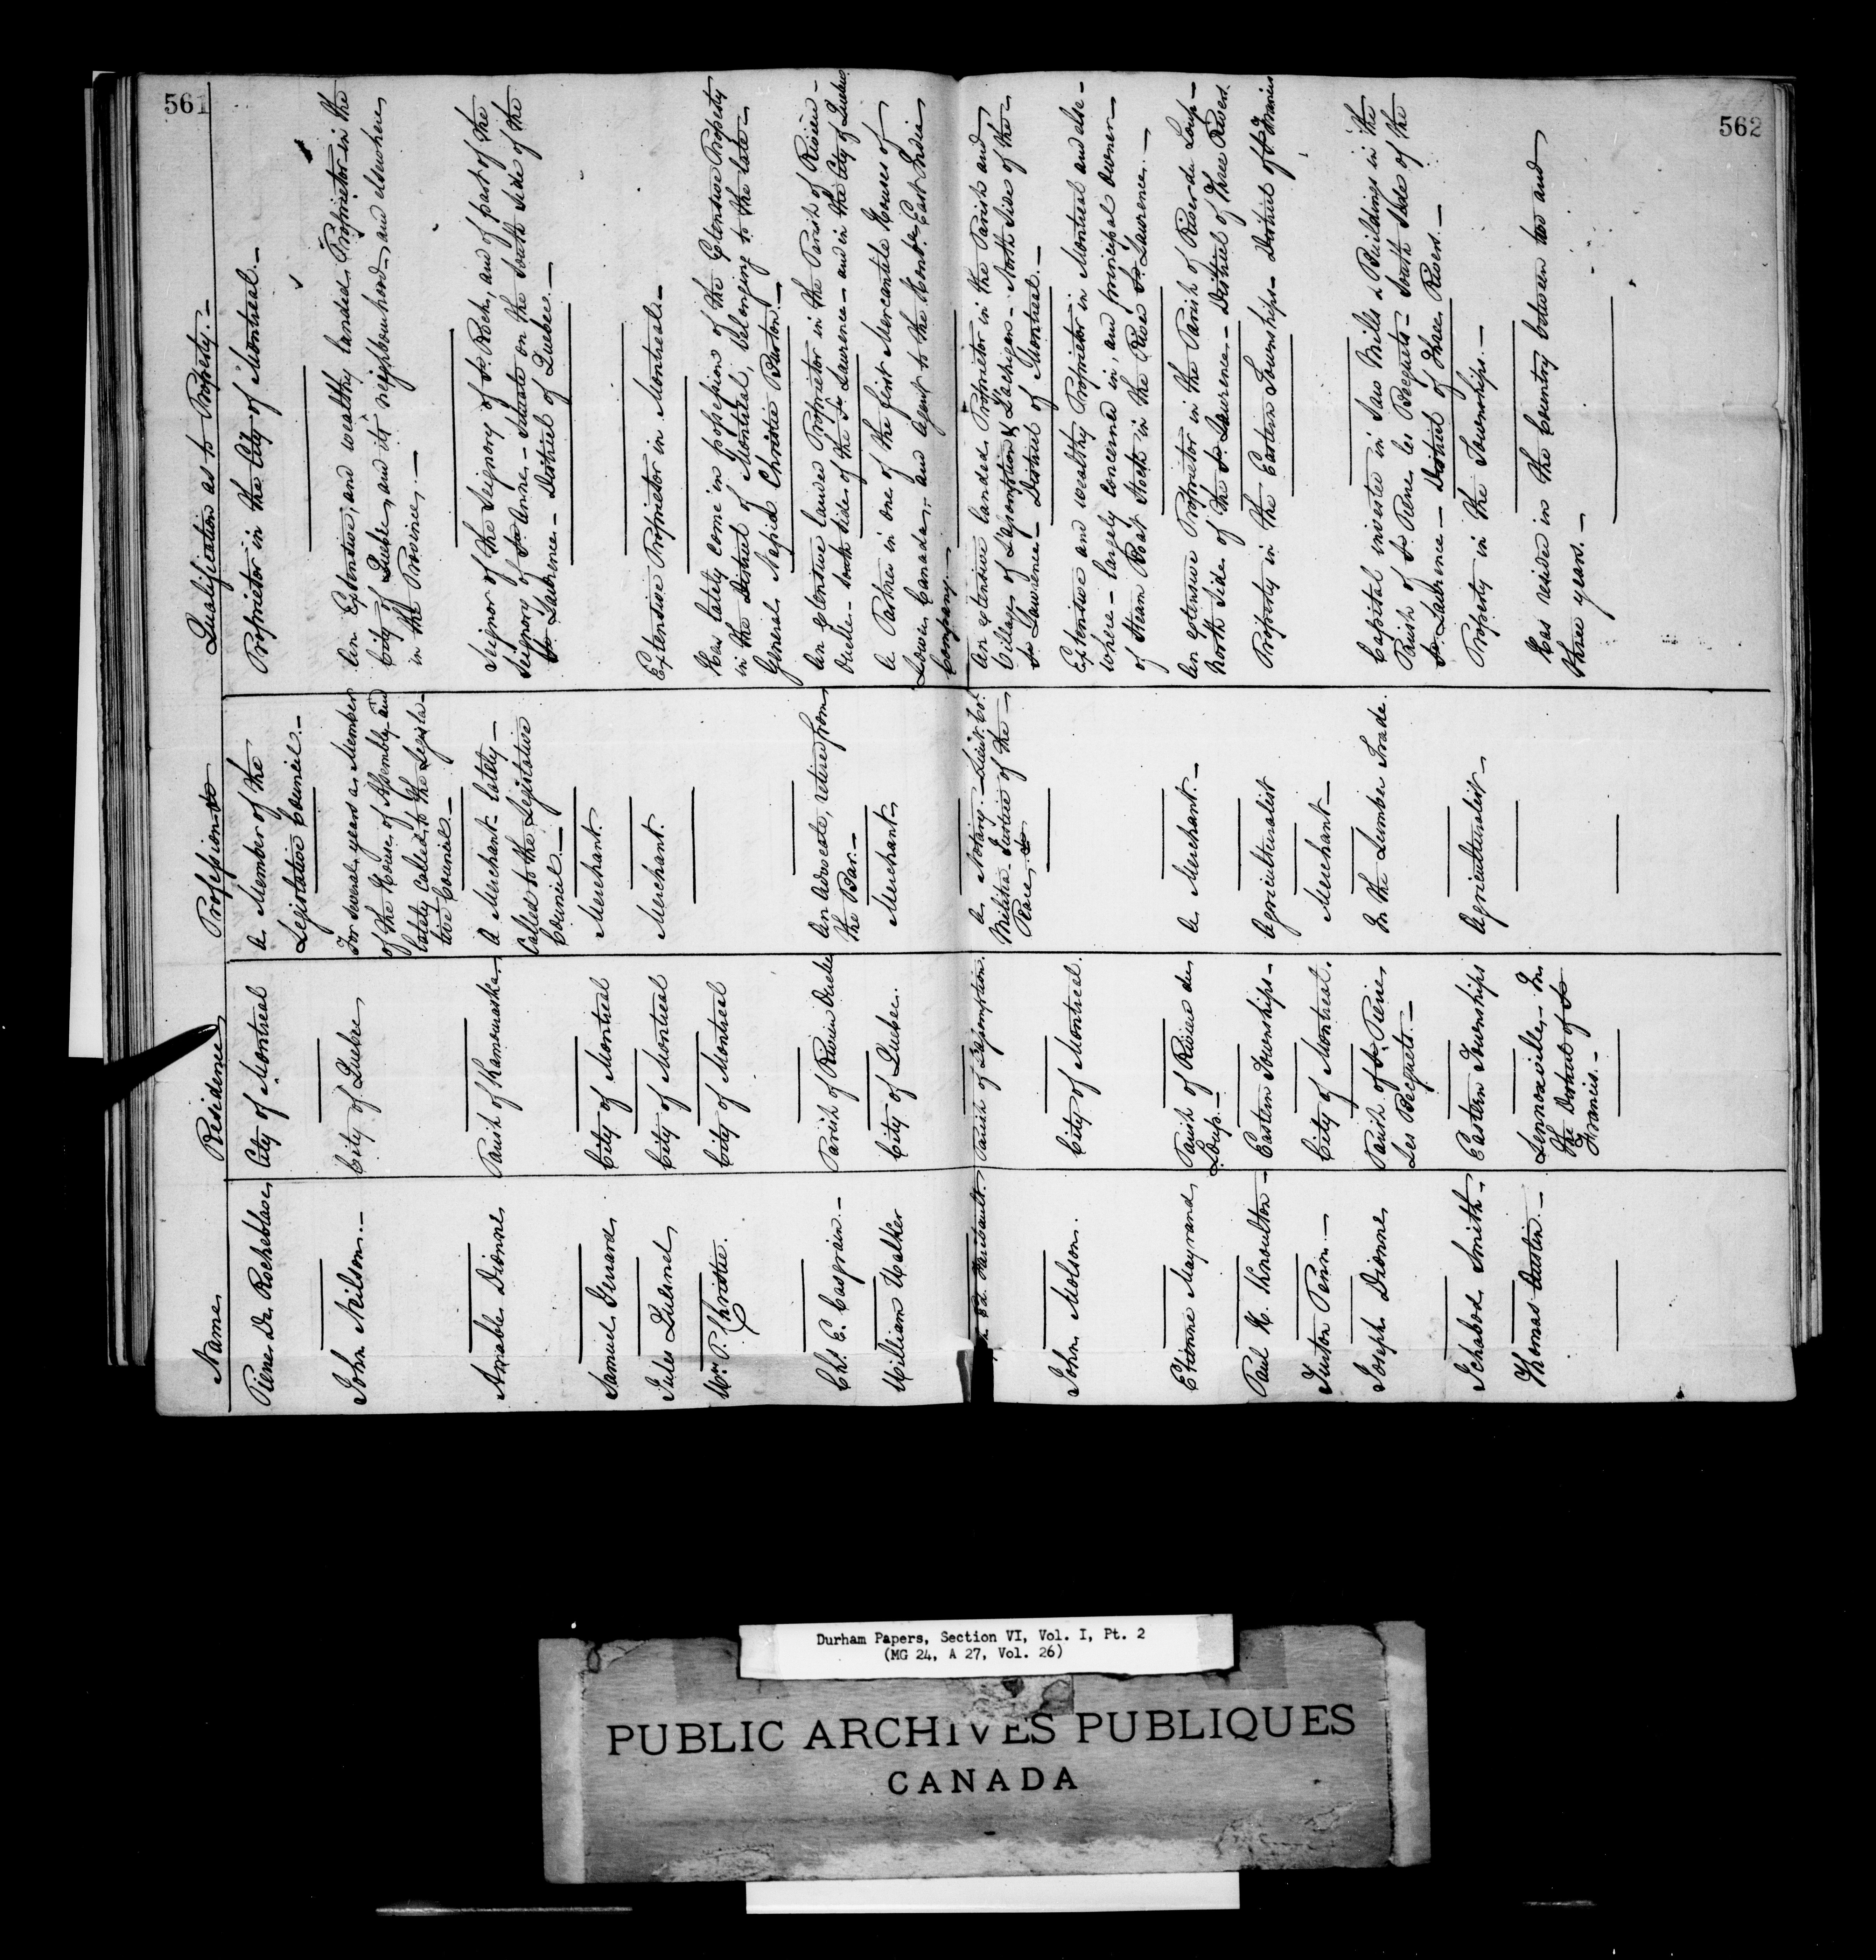 561
562
Name
Residence
Profession &c
Qualification as to Property. —
Pierre De Rocheblave
City of Montreal
A Member of the
Legislative Council. —
Proprietor in the City of Montreal. —
John Neilson. —
City of Quebec
For several years a Member
of the House of Assembly and
lately called to the Legisla-
tive Council. —
An Extensive, and wealthy landed Proprietor in the
City of Quebec, and its neighbourhood, and elsewhere
in the Province. —
Amable Dionne
Parish of Kamouraska
A Merchant lately —
Called to the Legislative
Council. —
Seignor of the Seignory of St. Roch, and of part of the
Seignory of St. Anne — Situate on the South Side of the
St. Lawrence — District of Quebec. —
Samuel Gerrard
City of Montreal
Merchant.
Jules Quesnel
City of Montreal
Merchant.
Extensive Proprietor in Montreal. —
Wm. P. Christie.
City of Montreal
Has lately come in possession of the Extensive Property
in the District of Montreal, belonging to the late —
General Napier Christie Burton. —
Chs. E. Casgrain. —
Parish of Riviere Ouelle
An Advocate, retired from
the Bar. —
An extensive landed Proprietor in the Parish of Riviere —
Ouelle — South Side of the St. Lawrence — and in the City of Quebec
William Walker
City of Quebec.
Merchant —
A Partner in one of the first Mercantile Houses of
Lower Canada, and Agent to the Honble. East India
Company. —
Ed. Faribault.
Parish of L'Assomption.
A Notary. — Lieut. Col.
Militia — Justice of the —
Peace, &c
An extensive landed Proprietor in the Parish and
Villages of L'Assomption & Lachigan — North Side of the —
St. Lawrence — District of Montreal. —
John Molson.
City of Montreal.
Extensive and wealthy Proprietor in Montreal and else —
where — largely concerned in, and principal owner —
of Steam Boat Stock in the River St. Lawrence. —
Etienne Mayrand
Parish of Riviere du
Loup. —
A Merchant. —
An extensive Proprietor in the Parish of River du Loup —
North Side of the St. Lawrence — District of Three Rivers.
Paul H. Knoulton —
Eastern Townships —
Agriculturalist
Property in the Eastern Townships — District of St. Francis
Turton Penn. —
City of Montreal.
Merchant —
Joseph Dionne
Parish of St. Pierre
Les Becquets. —
In the Lumber Trade.
Capital invested in Saw Mills & Buildings in the
Parish of St. Pierre les Becquets — South Side of the
St. Lawrence — District of Three Rivers. —
Ichabod Smith —
Eastern Townships
Agriculturalist —
Property in the Townships. —
Thomas Austin. —
Lennoxville — In
the District of St.
Francis. —
Has resided in the Country between two and
three years. —
Durham Papers, Section VI, Vol. I, Pt. 2
(MG 24, A 27, Vol. 26)
PUBLIC ARCHIVES PUBLIQUES
CANADA